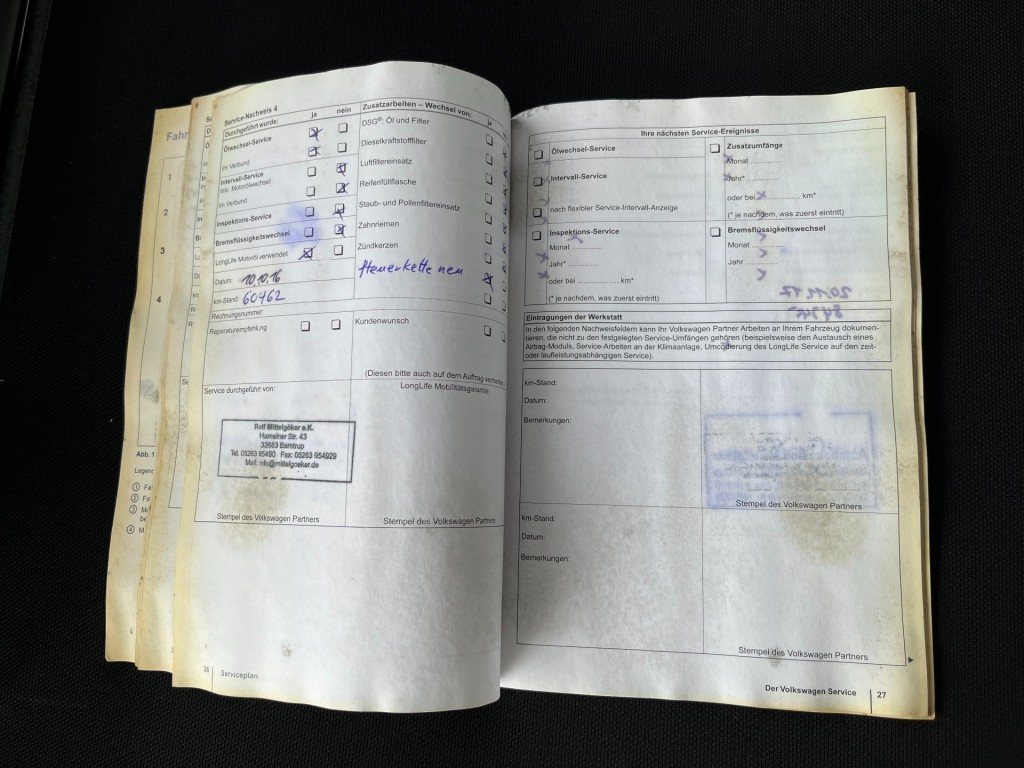 Fahr
1
2
3
4
Abb. 1
Legend
① Fa
② Fe
③ M
be
④ M
Service-Nachweis 4
ja nein
Durchgeführt wurde:
Ölwechsel-Service
im Verbund
Intervall-Service
inkl. Motorölwechsel
im Verbund
Inspektions-Service
Bremsflüssigkeitswechsel
LongLife Motoröl verwendet
Datum: 10.10.16
km-Stand: 60462
Rechnungsnummer:
Reparaturempfehlung
Zusatzarbeiten – Wechsel von:
ja
DSG®: Öl und Filter
Dieselkraftstofffilter
Luftfiltereinsatz
Reifenfüllflasche
Staub- und Pollenfiltereinsatz
Zahnriemen
Zündkerzen
Steuerkette neu
Kundenwunsch
(Diesen bitte auch auf dem Auftrag
Service durchgeführt von:
LongLife Mobilitätsgarantie:
Rolf Mittelgöker e.K.
Hamelner Str. 43
32683 Barntrup
Tel. 05263 95490 Fax: 05263 954929
Mail: info@mittelgoeker.de
Stempel des Volkswagen Partners
Stempel des Volkswagen Partners
26 Serviceplan
Ihre nächsten Service-Ereignisse
Ölwechsel-Service
Intervall-Service
nach flexibler Service-Intervall-Anzeige
Inspektions-Service
Monat ............
Jahr* ............
oder bei ................ km*
(* je nachdem, was zuerst eintritt)
Zusatzumfänge
Monat ............
Jahr* ............
oder bei ................ km*
(* je nachdem, was zuerst eintritt)
Bremsflüssigkeitswechsel
Monat ............
Jahr ............
Eintragungen der Werkstatt
In den folgenden Nachweisfeldern kann Ihr Volkswagen Partner Arbeiten an Ihrem Fahrzeug dokumen-
tieren, die nicht zu den festgelegten Service-Umfängen gehören (beispielsweise den Austausch eines
Airbag-Moduls, Service-Arbeiten an der Klimaanlage, Umcodierung des LongLife Service auf den zeit-
oder laufleistungsabhängigen Service).
km-Stand:
Datum:
Bemerkungen:
Stempel des Volkswagen Partners
km-Stand:
Datum:
Bemerkungen:
Stempel des Volkswagen Partners
Der Volkswagen Service 27